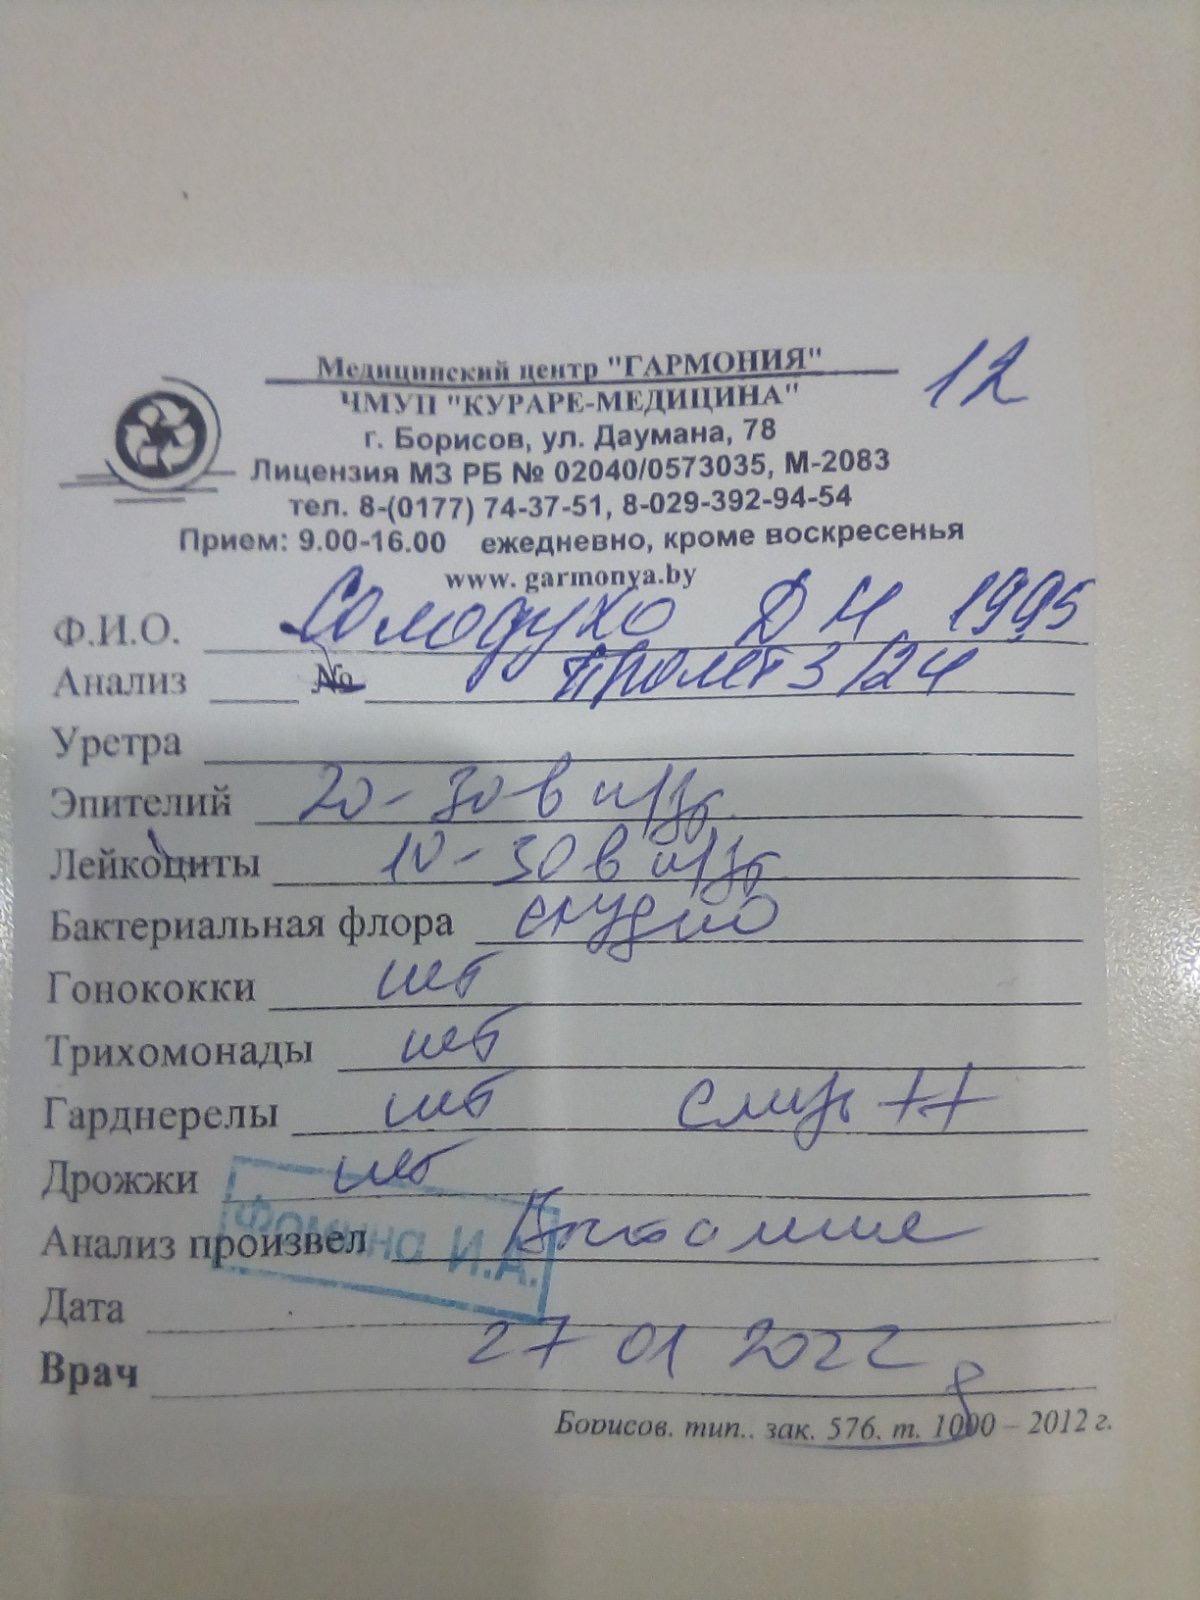 Медицинский центр "ГАРМОНИЯ" 12
ЧМУП "КУРАРЕ-МЕДИЦИНА"
г. Борисов, ул. Даумана, 78
Лицензия МЗ РБ № 02040/0573035, М-2083
тел. 8-(0177) 74-37-51, 8-029-392-94-54
Прием: 9.00-16.00 ежедневно, кроме воскресенья
www. garmonya.by
Ф.И.О. Солодухо Д Н 1995
Анализ № 3/24
Уретра
Эпителий 20-30 в п/зр
Лейкоциты 10-30 в п/зр
Бактериальная флора скудно
Гонококки нет
Трихомонады нет
Гарднерелы нет слизь ++
Дрожжи нет
Анализ произвел
Фомина И.А.
Дата
27 01 2022
Врач
Борисов. тип.. зак. 576. т. 1000 – 2012 г.